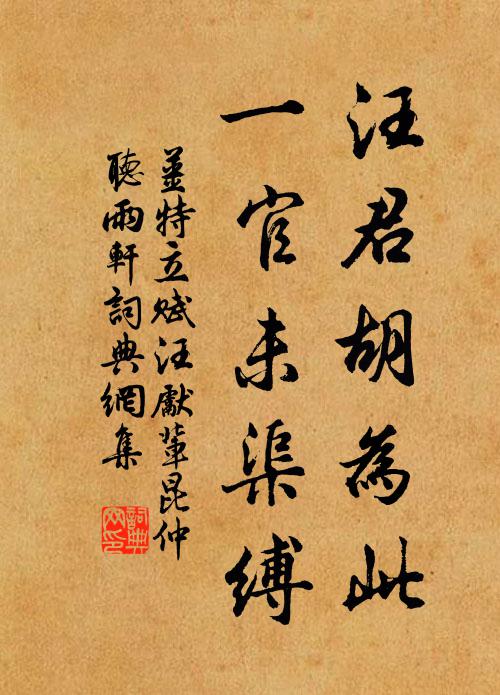 汪君胡為此
一官未渠縛
姜特立賦汪獻輩昆仲
聽雨軒詞典網集